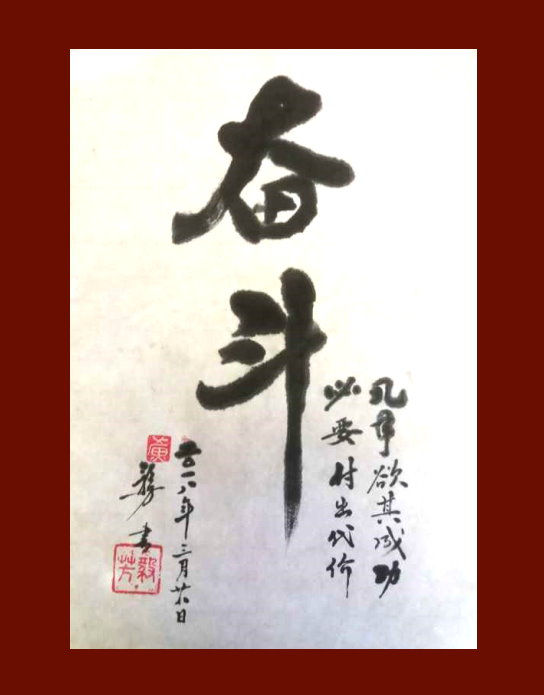 奋斗
凡事欲其成功
必要付出代价
二〇一八年三月廿六日
黄
毅芳